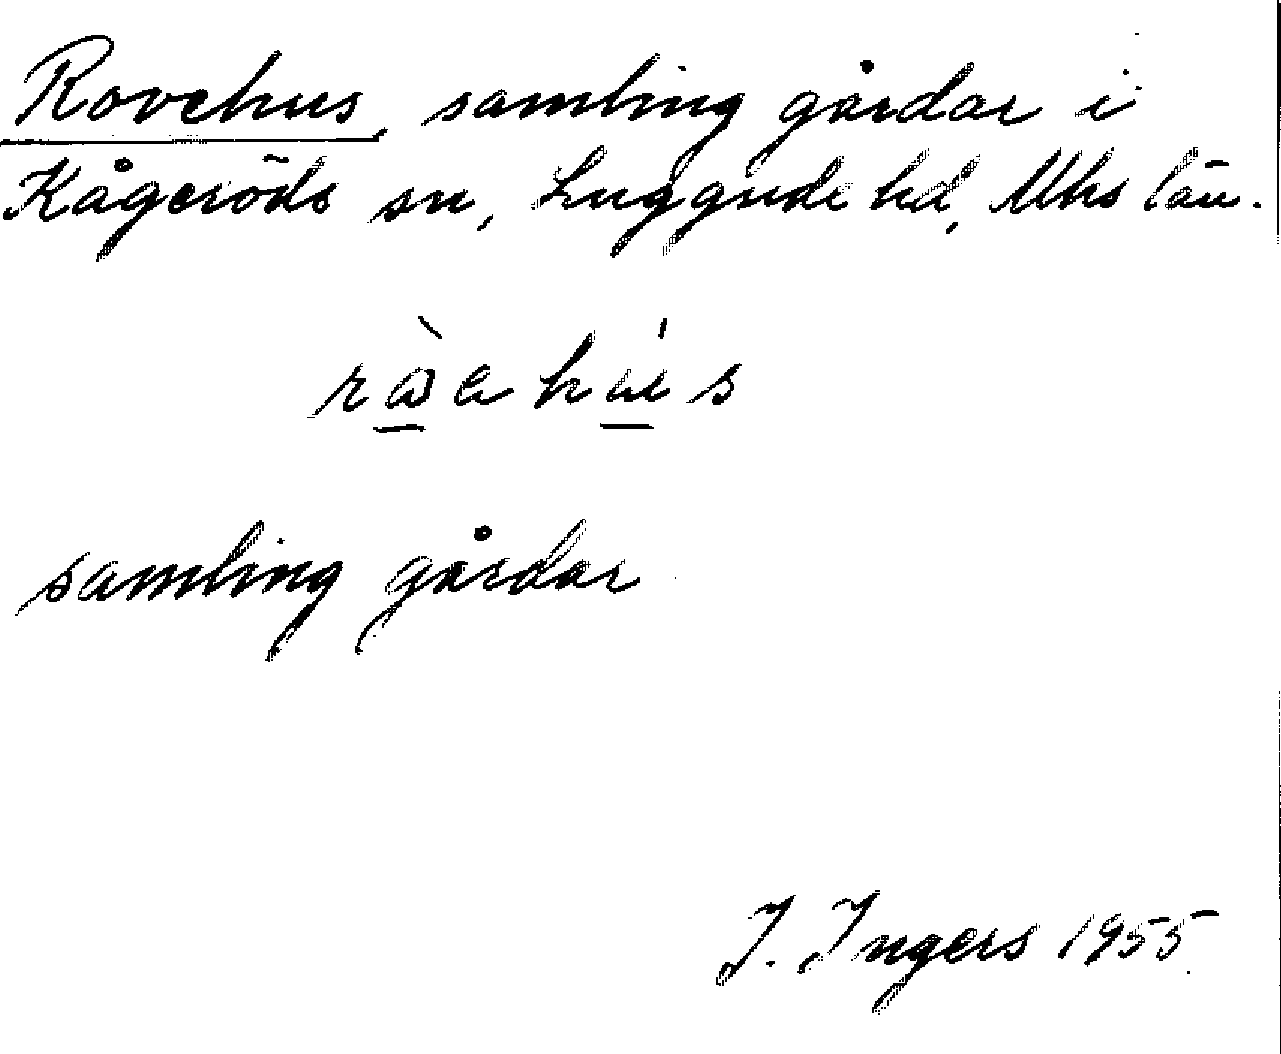 Rovehus, samling gårdar i
Kågeröds sn, Luggude hd, Mhs län.
samling gårdar
I. Ingers 1955